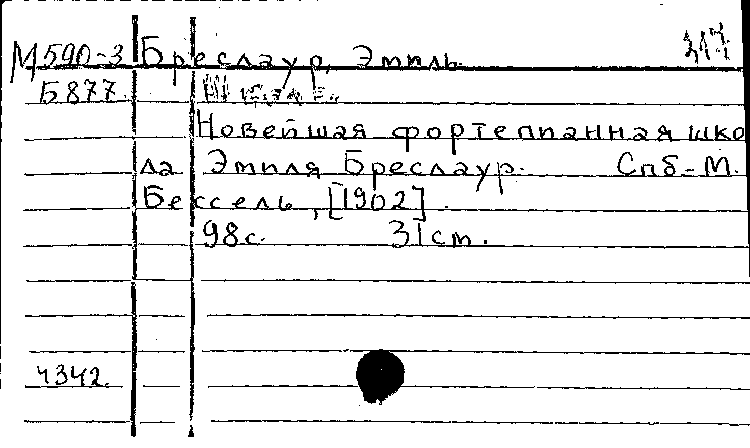 М590-3 Бреслаур, Эмиль.
Б877
Новейшая фортепианная шко
ла Эмиля Бреслаур. Спб-М.
Бессель, [1902].
98с. 31см.
4342.